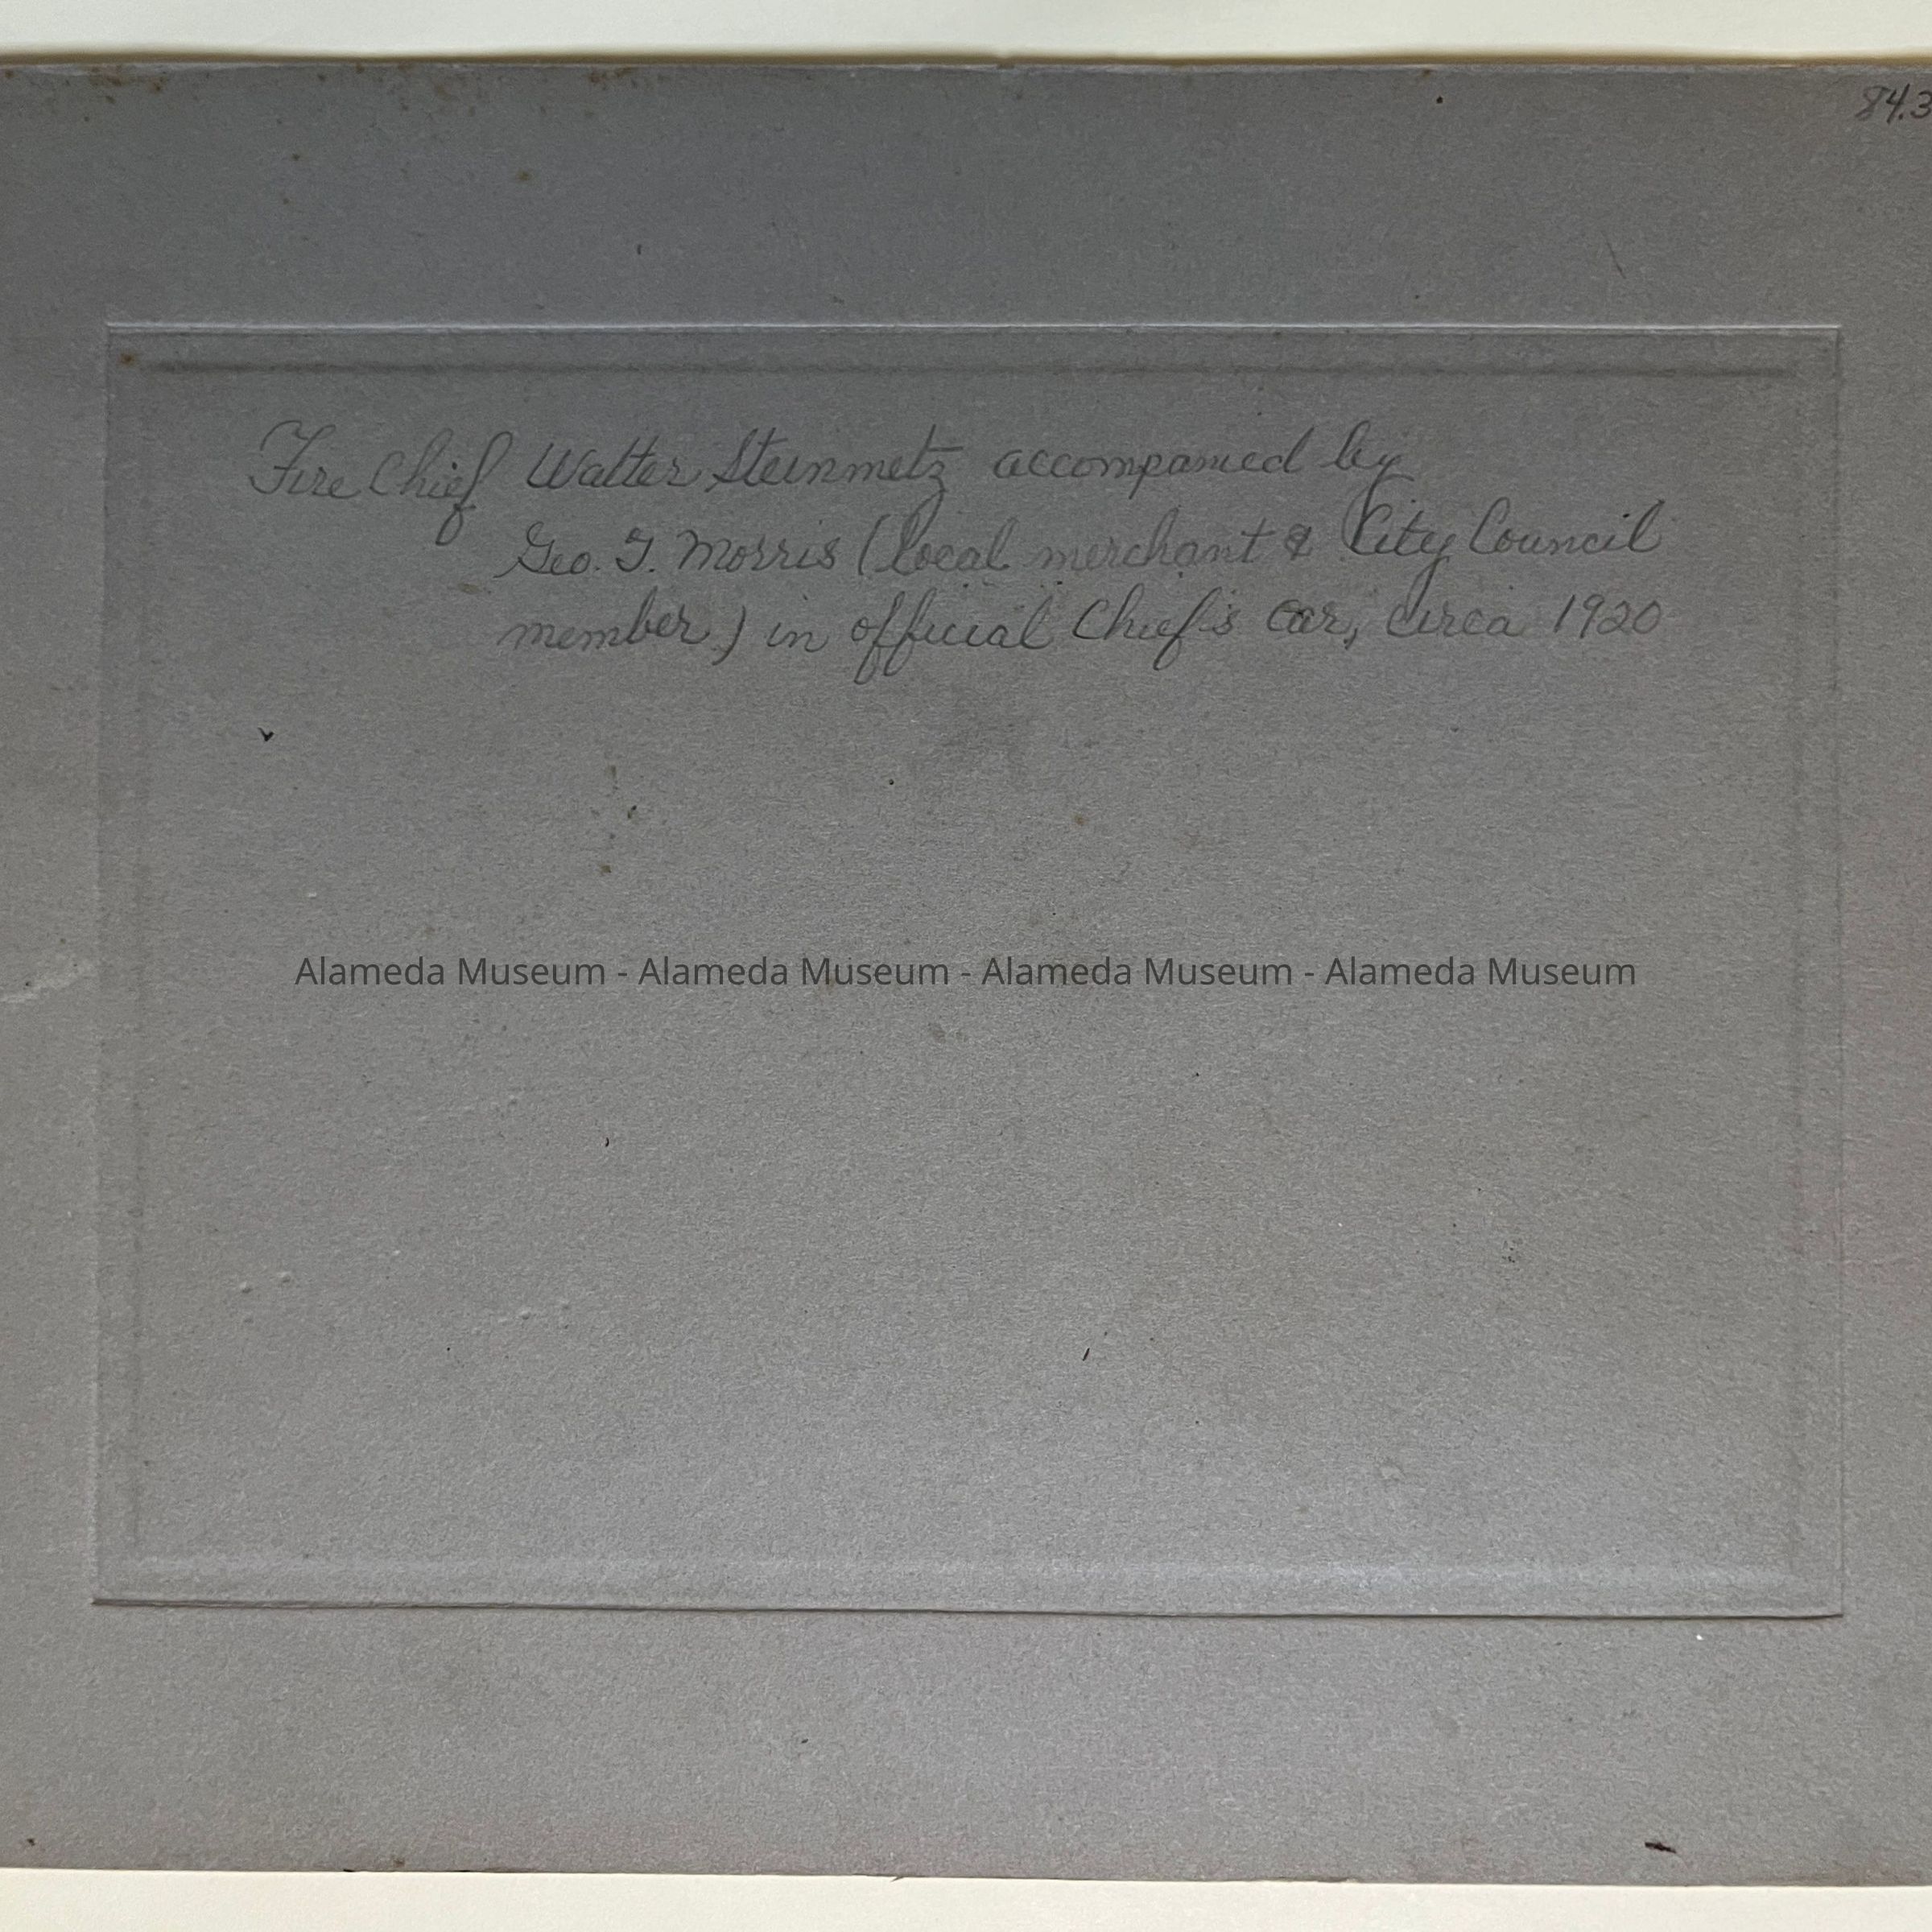 84.3
Fire Chief Walter Steinmetz accompanied by
Geo. T. Morris (local merchant & City Council
member) in official Chief's car, circa 1920
Alameda Museum - Alameda Museum - Alameda Museum - Alameda Museum